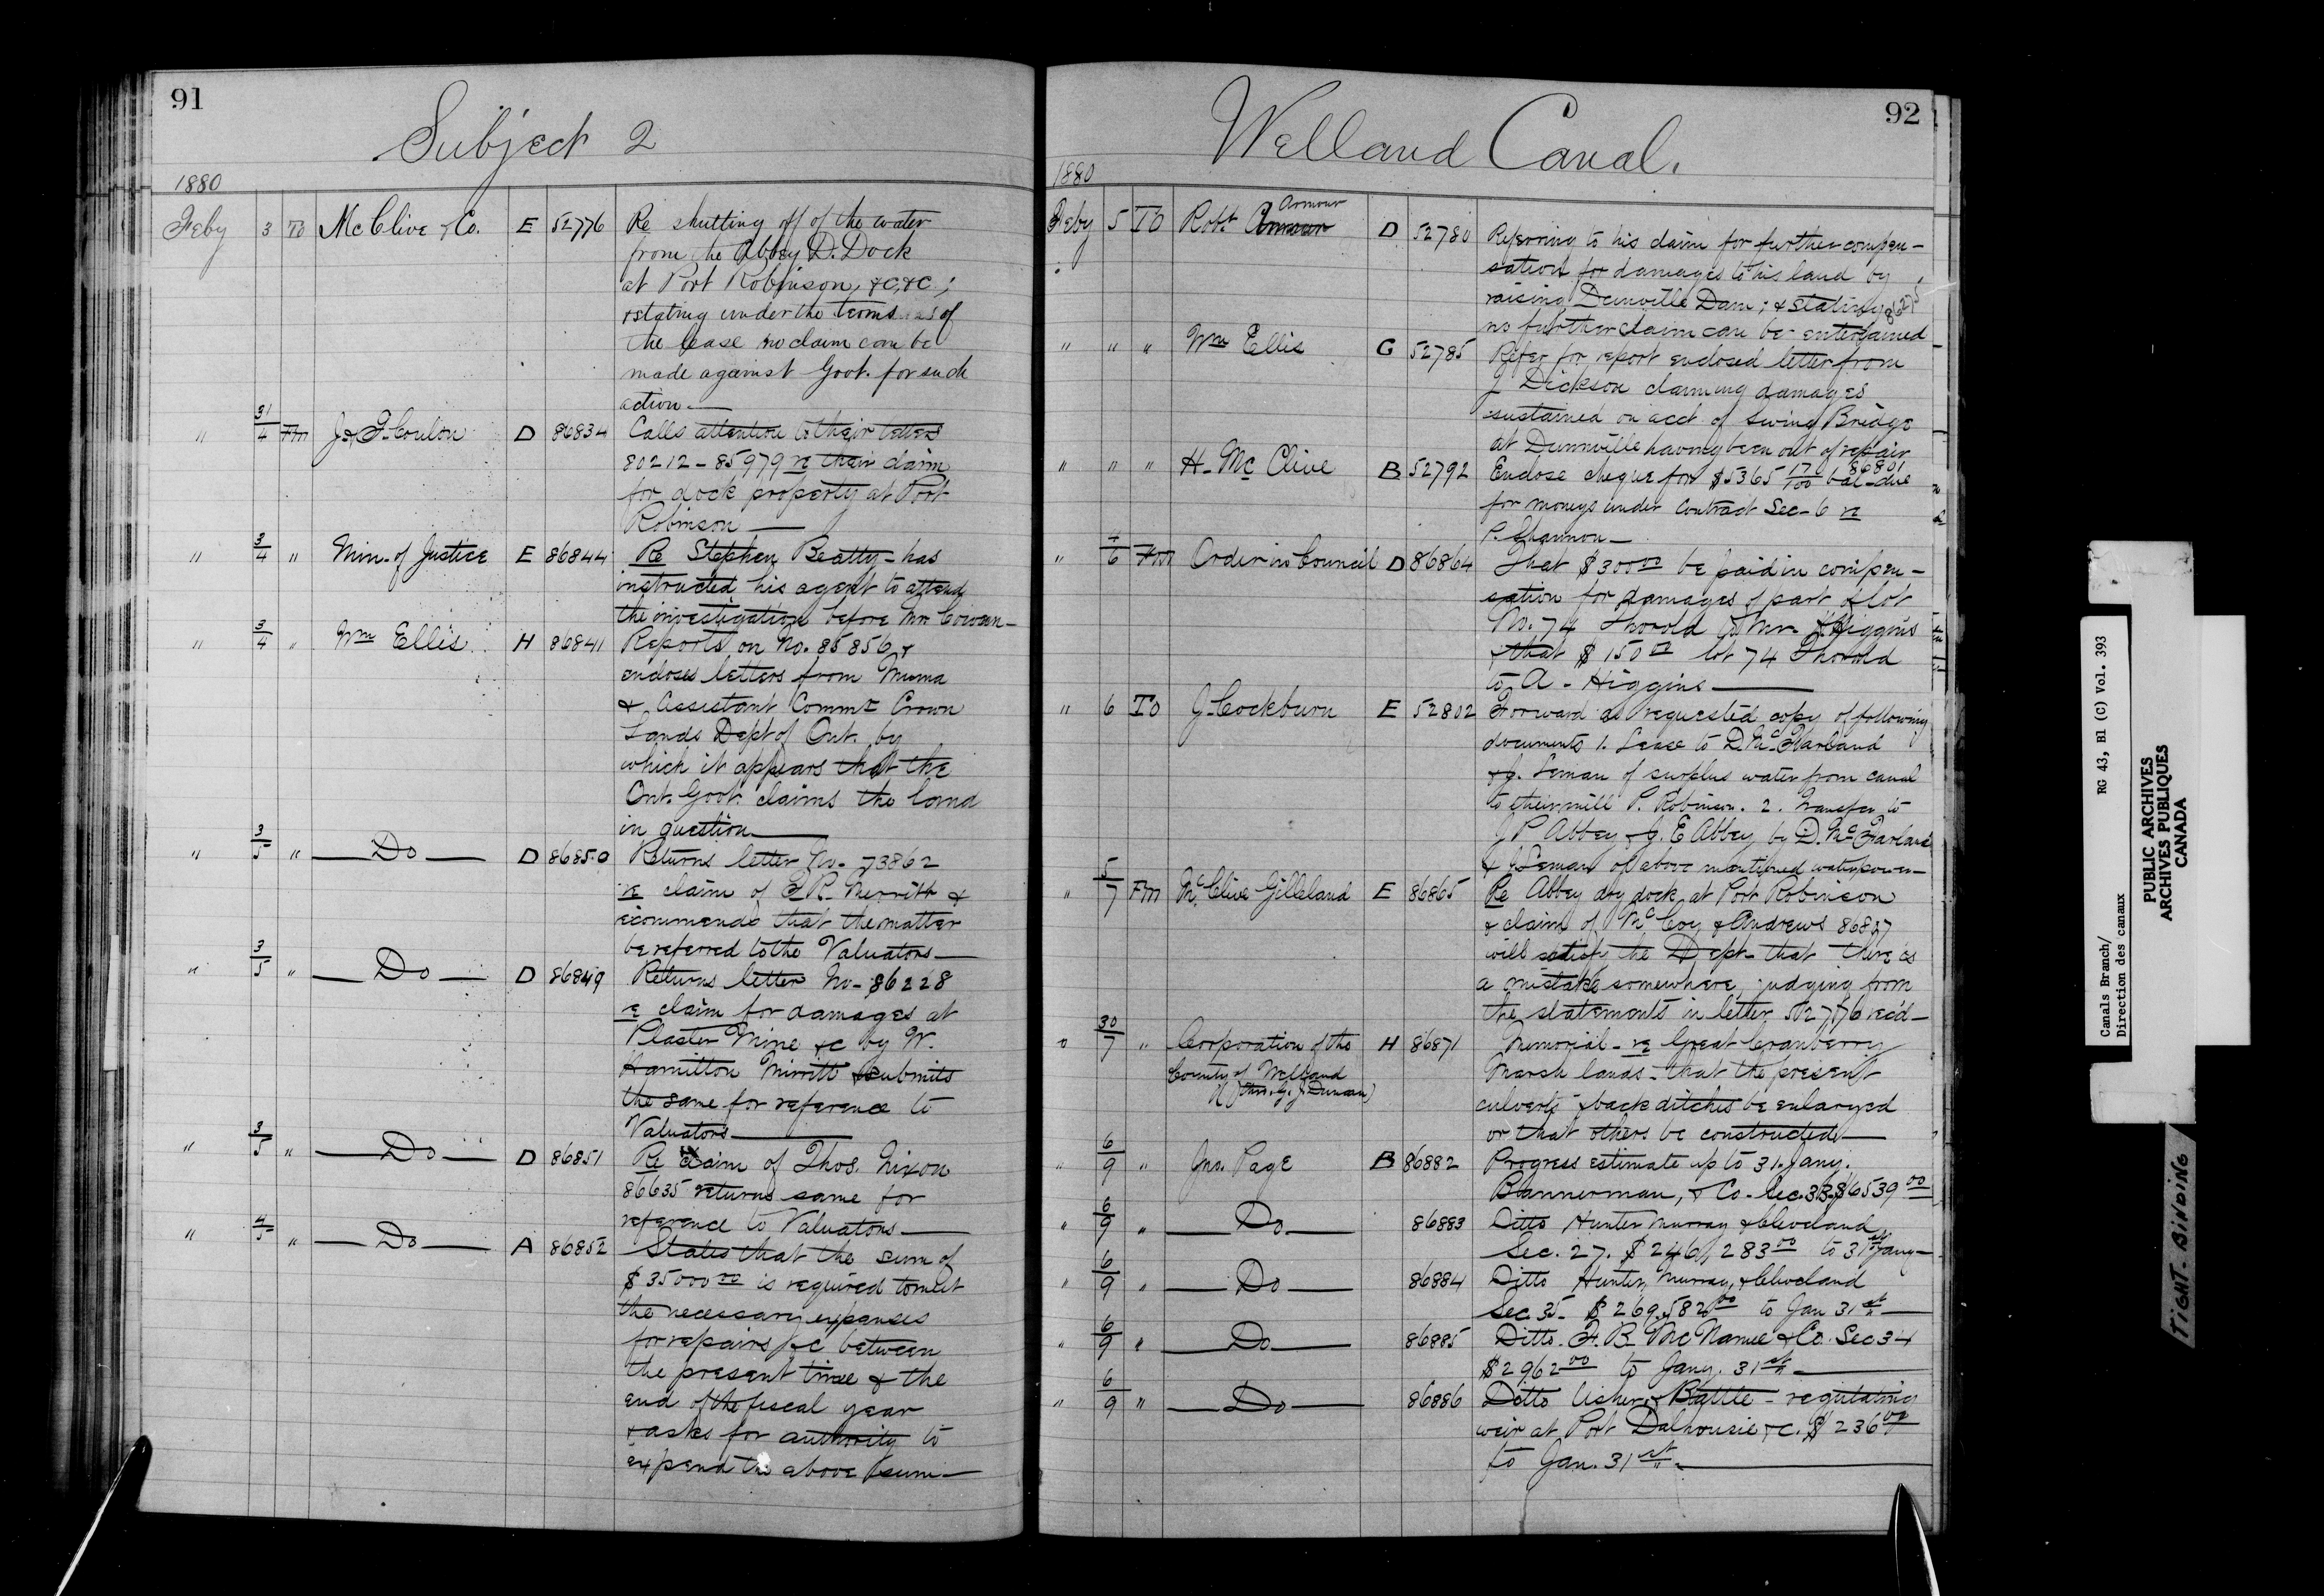 91
Subject 2
1880
Feby 3 To McClive & Co. E 52776 Re shutting off of the water
from the Abbey D. Dock
at Port Robinson, &c, &c;
& stating under the terms of
the lease no claim can be
made against Govt. for such
action —
" 31/4 Fm J. & F. Coulon D 86834 Calls attention to their letters
80212 - 85979 re their claim
for dock property at Port
Robinson —
" 3/4 " Min. of Justice E 86844 Re Stephen Beatty - has
instructed his agent to attend
the investigation before Mr Cowan -
" 3/4 " Wm Ellis H 86841 Reports on No. 85856 &
encloses letters from Muma
& Assistant Commr Crown
Lands Dept of Ont. by
which it appears that the
Ont. Govt. claims the land
in question —
" 3/5 " — Do — D 86850 Returns letter No. 73862
re claim of E R. Merritt &
recommends that the matter
be referred to the Valuators —
" 3/5 " — Do — D 86849 Returns letter No- 86228
re claim for damages at
Plaster Mine &c by W.
Hamilton Merritt & submits
the same for reference to
Valuators —
" 3/5 " — Do — D 86851 Re claim of Thos. Nixon
86635 returns same for
reference to Valuators —
" 4/5 " — Do — A 86852 States that the sum of
$35000 00 is required to meet
the necessary expenses
for repairs &c between
the present time & the
end of the fiscal year
& asks for authority to
expend the above sum —
92
Welland Canal.
1880
Feby 5 To Robt Armour D 52780 Referring to his claim for further compen-
sation for damages to his land by
raising Dunville Dam; & stating
no further claim can be entertained
" " " Wm Ellis G 52785 Refer for report enclosed letter from
J Dickson claiming damages
sustained on acct of Swing Bridge
at Dunnville having been out of repair
86801
" " " H. McClive B 52792 Enclose cheque for $5365 17/100 bal - due
for moneys under contract Sec - 6 re
P. Shannon —
" 4/6 Fm Order in Council D 86864 That $300 00 be paid in compen-
sation for damages of part of lot
No. 74 Thorold to Mr. Higgins
& that $150 00 lot 74 Thorold
to A - Higgins —
" 6 To J. Cockburn E 52802 Forward as requested copy of following
documents 1. Lease to D. McFarland
& J. Leman of surplus water from canal
to their mill P. Robinson. 2. Transfer to
J P. Abbey & J. E Abbey by D. McFarland
& J. Leman of above mentioned waterpower —
" 5/7 Fm McClive Gilleland E 86865 Re Abbey dry dock at Port Robinson
& claim of McCoy & Andrews 86837
will satisfy the Dept - that there is
a mistake somewhere, judging from
the statements in letter 52776 rec'd -
" 30/7 " Corporation of the H 86871 Memorial - re Great Cranberry
County of Welland
Marsh lands - that the present
culverts & back ditches be enlarged
or that others be constructed —
" 6/9 " Jno. Page B 86882 Progress estimate up to 31. Jany.
Bannerman, & Co - Sec. 33 $6539 00
" 6/9 " — Do — 86883 Ditto Hunter Murray & Cleveland
Sec. 27. $246,283 00 to 31st Jany -
" 6/9 " — Do — 86884 Ditto Hunter, Murray, & Cleveland
Sec 35 - $269,582 00 to Jan 31st —
" 6/9 " — Do — 86885 Ditto. F. B. McNamee & Co. Sec 34
$2962 00 to Jany. 31st —
" 6/9 " — Do — 86886 Ditto Usher & Battle - regulating
weir at Port Dalhousie &c. $236 00
to Jan. 31st —
Canals Branch/
Direction des canaux
RG 43, B1 (C) Vol. 393
PUBLIC ARCHIVES
ARCHIVES PUBLIQUES
CANADA
TIGHT BINDING